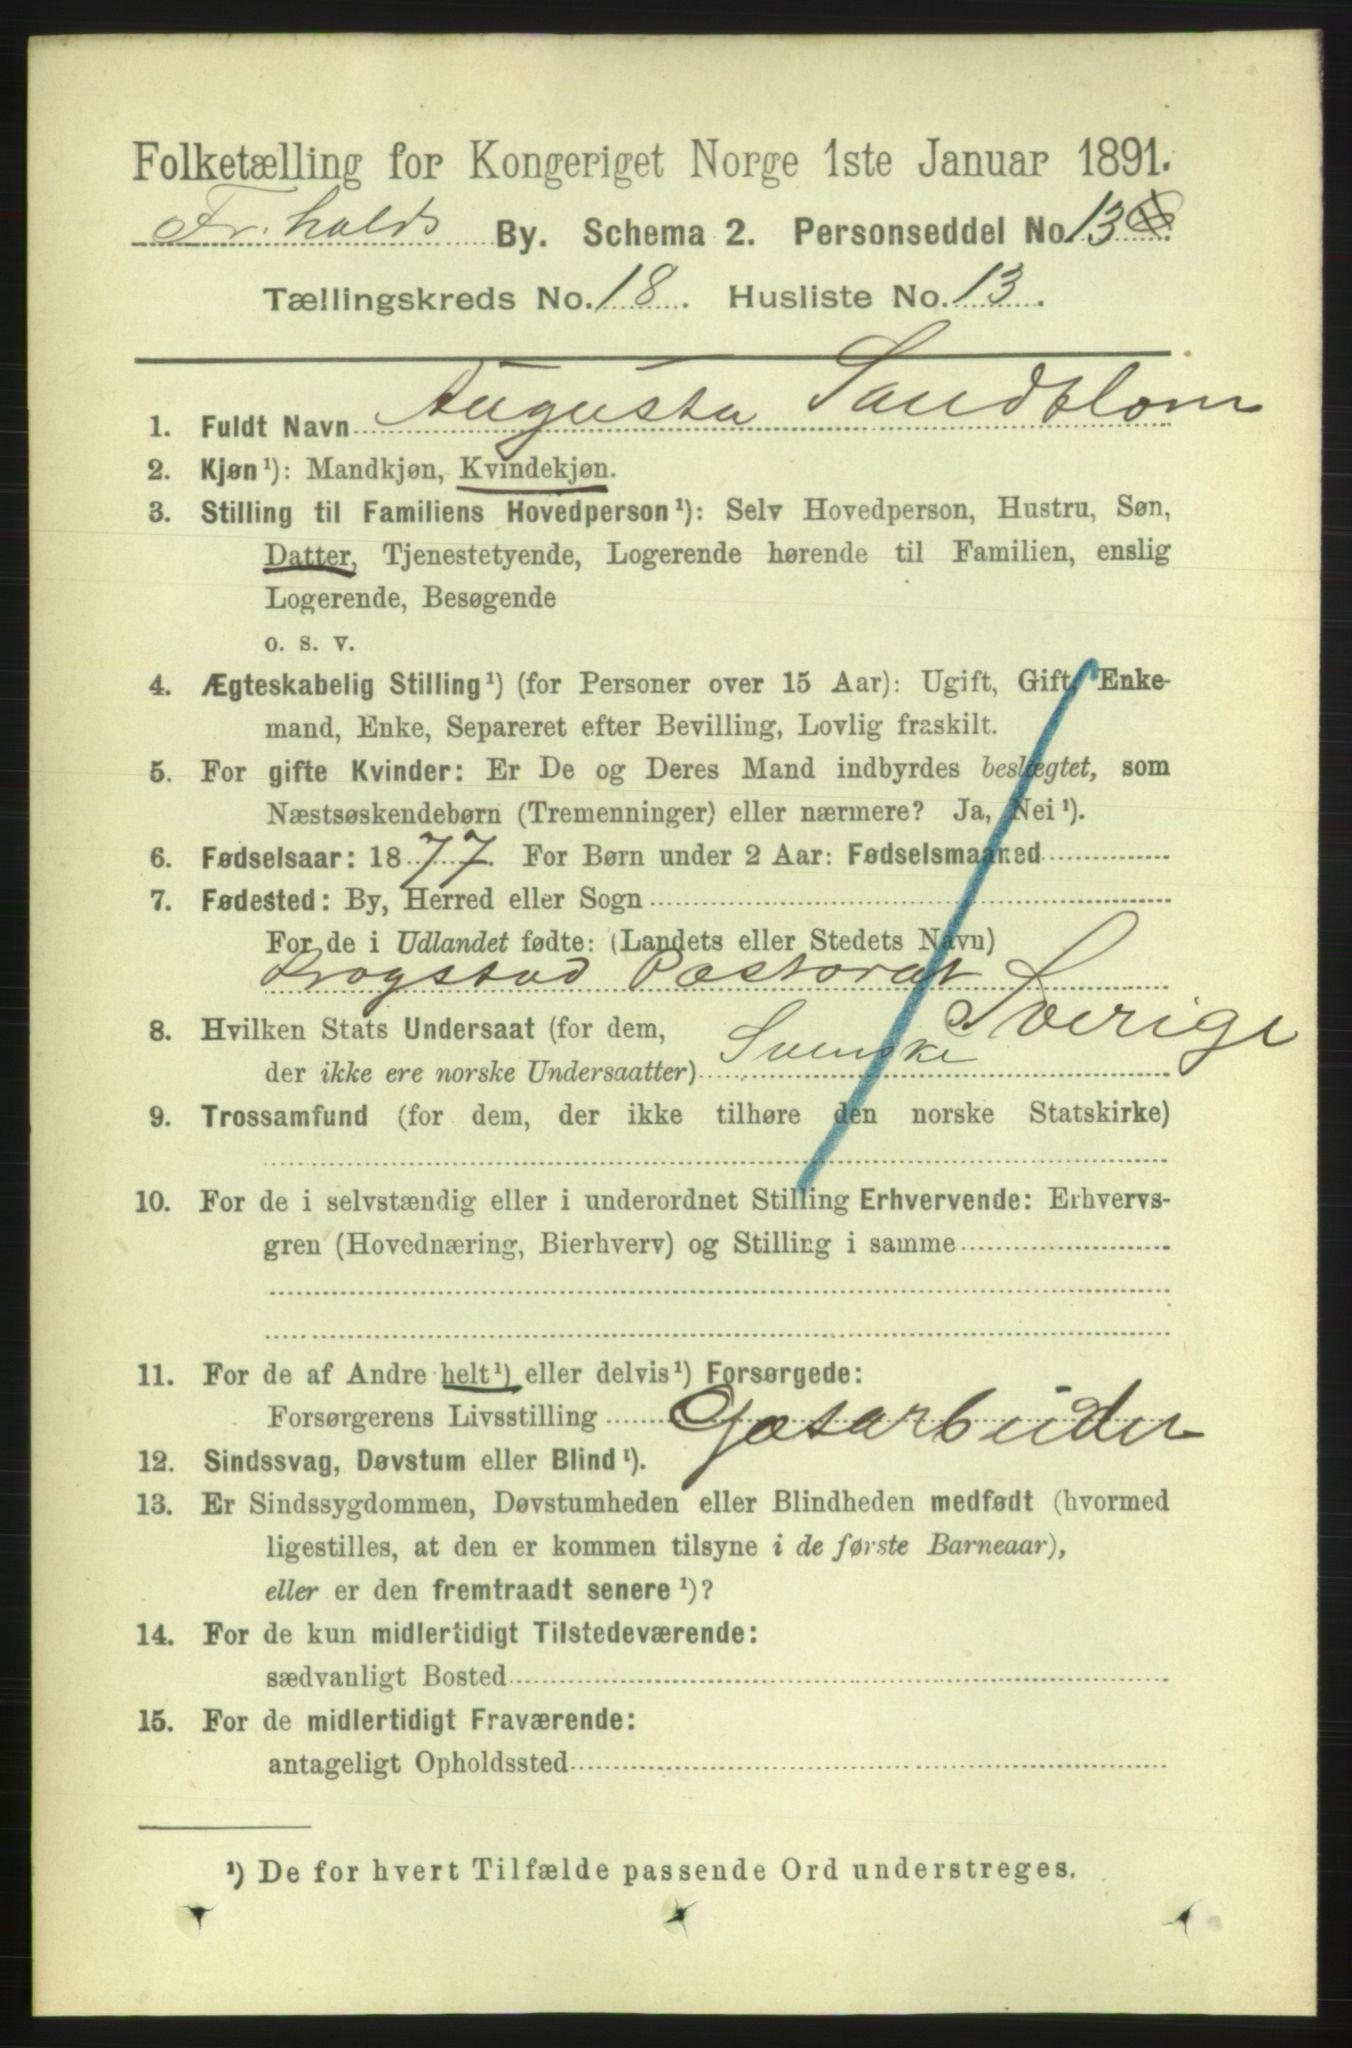 Folketælling for Kongeriget Norge 1ste Januar 1891.
Fr.halds By. Schema 2. Personseddel No 13
Tællingskreds No. 18. Husliste No. 13.
1. Fuldt Navn Augusta Sandblom
2. Kjøn¹): Mandkjøn, Kvindekjøn.
3. Stilling til Familiens Hovedperson¹): Selv Hovedperson, Hustru, Søn,
Datter, Tjenestetyende, Logerende hørende til Familien, enslig
Logerende, Besøgende
o. s. v.
4. Ægteskabelig Stilling¹) (for Personer over 15 Aar): Ugift, Gift, Enke-
mand, Enke, Separeret efter Bevilling, Lovlig fraskilt.
5. For gifte Kvinder: Er De og Deres Mand indbyrdes beslægtet, som
Næstsøskendebørn (Tremenninger) eller nærmere? Ja, Nei¹).
6. Fødselsaar: 1877. For Børn under 2 Aar: Fødselsmaaned
7. Fødested: By, Herred eller Sogn
For de i Udlandet fødte: (Landets eller Stedets Navn)
Krogstad Pastorat Sverige
8. Hvilken Stats Undersaat (for dem,
der ikke ere norske Undersaatter) Svenske
9. Trossamfund (for dem, der ikke tilhøre den norske Statskirke)
10. For de i selvstændig eller i underordnet Stilling Erhvervende: Erhvervs-
gren (Hovednæring, Bierhverv) og Stilling i samme
11. For de af Andre helt¹) eller delvis¹) Forsørgede:
Forsørgerens Livsstilling Gasarbeider
12. Sindssvag, Døvstum eller Blind¹).
13. Er Sindssygdommen, Døvstumheden eller Blindheden medfødt (hvormed
ligestilles, at den er kommen tilsyne i de første Barneaar),
eller er den fremtraadt senere¹)?
14. For de kun midlertidigt Tilstedeværende:
sædvanligt Bosted
15. For de midlertidigt Fraværende:
antageligt Opholdssted
¹) De for hvert Tilfælde passende Ord understreges.